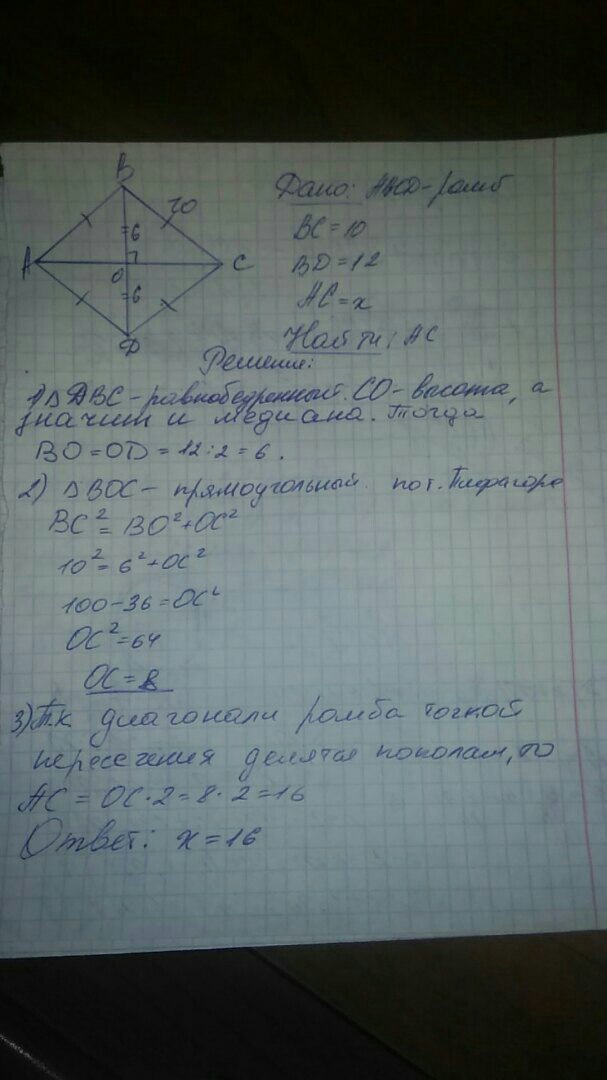 B
10
6
A
O
C
6
D
Дано: ABCD-ромб
BC=10
BD=12
AC=x
Найти: AC
Решение:
1) Δ DBC-равнобедренный. CO-высота, а
значит и медиана. Тогда
BO=OD=12:2=6.
2) Δ BOC- прямоугольный. по т. Пифагора
BC²=BO²+OC²
10²=6²+OC²
100-36=OC²
OC²=64
OC=8
3) Т.к диагонали ромба точкой
пересечения делятся пополам, то
AC=OC·2=8·2=16
Ответ: x=16